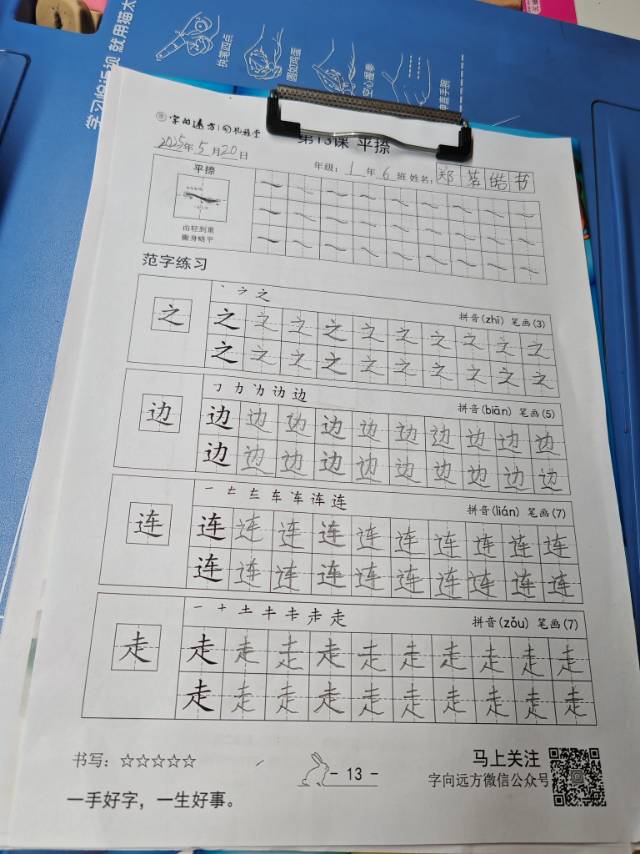 执笔四点
学习悦近视 就用猫太
字向远方
第13课 平捺
2025年5月20日
年级：1年6班 姓名：郑 皓 书
平捺
由轻到重
範练习
范字练习
丶 ㇇ 之
拼音(zhī) 笔画(3)
之 之 之 之 之 之 之 之 之 之 之
之 之 之 之 之 之 之 之 之 之
フ 力 边
拼音(biān) 笔画(5)
边 边 边 边 边 边 边 边 边 边 边
边 边 边 边 边 边 边 边 边 边
一 车 连
拼音(lián) 笔画(7)
连 连 连 连 连 连 连 连 连 连 连
连 连 连 连 连 连 连 连 连 连
一 十 土 走 走
拼音(zǒu) 笔画(7)
走 走 走 走 走 走 走 走 走 走 走
走 走 走 走 走 走 走 走 走 走
书写：☆☆☆☆☆
- 13 -
马上关注
字向远方微信公众号
一手好字，一生好事。